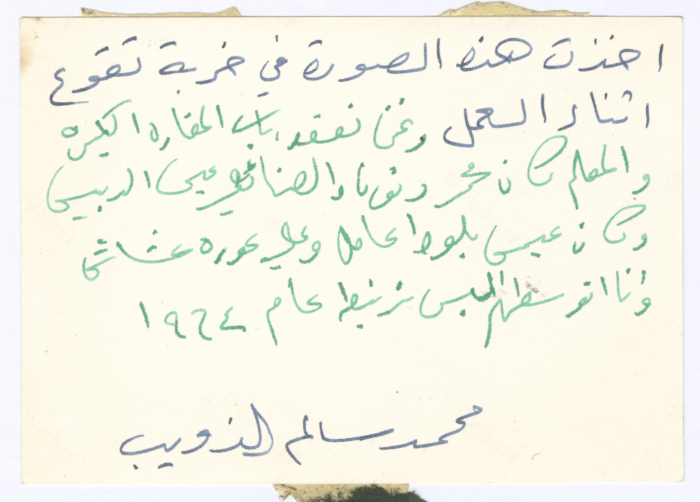 اخذت هذه الصورة في خربة تقوع
اثناء العمل ونحن نعقد باب المغاره الكبيره
والمعلم كان محمد والصناع عيسى الدبيس
وكان عيسى بلوط عامل وعلي عوده عشاش
وانا اتوسطهم البس برنيطه عام ١٩٦٤
محمد سالم الذويب